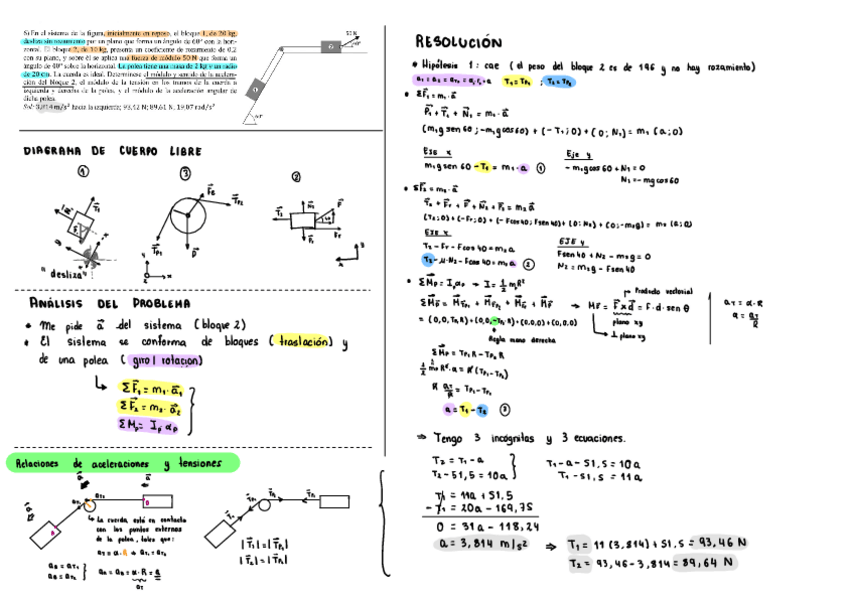 5) En el sistema de la figura, inicialmente en reposo, el bloque 1, de 20 kg,
desliza sin rozamiento por un plano que forma un ángulo de 60° con la hori-
zontal. El bloque 2, de 10 kg, presenta un coeficiente de rozamiento de 0,2
con su plano, y sobre él se aplica una fuerza de módulo 50 N que forma un
ángulo de 40° sobre la horizontal. La polea tiene una masa de 2 kg y un radio
de 20 cm. La cuerda es ideal. Determínese el módulo y sentido de la acelera-
ción del bloque 2, el módulo de la tensión en los tramos de la cuerda a
izquierda y derecha de la polea, y el módulo de la aceleración angular de
dicha polea.
Sol: 3,814 m/s² hacia la izquierda; 93,42 N; 89,61 N; 19,07 rad/s²
50 N
40°
60°
DIAGRAMA DE CUERPO LIBRE
① ③ ②
"desliza"
ANÁLISIS DEL PROBLEMA
• Me pide a⃗ del sistema (bloque 2)
• El sistema se conforma de bloques (traslación) y
de una polea (giro | rotacion)
ΣF⃗₁ = m₁·a⃗₁
ΣF⃗₂ = m₂·a⃗₂
ΣMₚ = Iₚ αₚ
Relaciones de aceleraciones y tensiones
La cuerda está en contacto
con los puntos externos
de la polea, tales que:
|T⃗₁| = |T⃗P₁|
|T⃗₂| = |T⃗P₂|
RESOLUCIÓN
• Hipótesis 1: cae (el peso del bloque 2 es de 196 y no hay rozamiento)
• ΣF⃗₁ = m₁·a⃗
P⃗₁ + T⃗₁ + N⃗₁ = m₁·a⃗
(m₁g sen 60; -m₁g cos 60) + (-T₁; 0) + (0; N₁) = m₁ (a; 0)
Eje x
m₁g sen 60 - T₁ = m₁·a ①
Eje y
-m₁g cos 60 + N₁ = 0
N₁ = -mg cos 60
• ΣF⃗₂ = m₂·a⃗
(T₂; 0) + (-Fr; 0) + (-F cos 40; F sen 40) + (0; N₂) + (0; -m₂g) = m₂ (a; 0)
EJE X
T₂ - Fr - F cos 40 = m₂a
T₂ - μ·N₂ - F cos 40 = m₂a ②
EJE Y
F sen 40 + N₂ - m₂g = 0
N₂ = m₂g - F sen 40
Producto vectorial
plano xy
⊥ plano xy
Regla mano derecha
a = T₁ - T₂ ③
⇒ Tengo 3 incógnitas y 3 ecuaciones.
T₂ = T₁ - a
T₂ - 51,5 = 10a
T₁ - a - 51,5 = 10a
T₁ - 51,5 = 11a
T₁ = 11a + 51,5
- T₁ = 20a - 169,75
0 = 31a - 118,24
a = 3,814 m/s² ⇒ T₁ = 11 (3,814) + 51,5 = 93,46 N
T₂ = 93,46 - 3,814 = 89,64 N